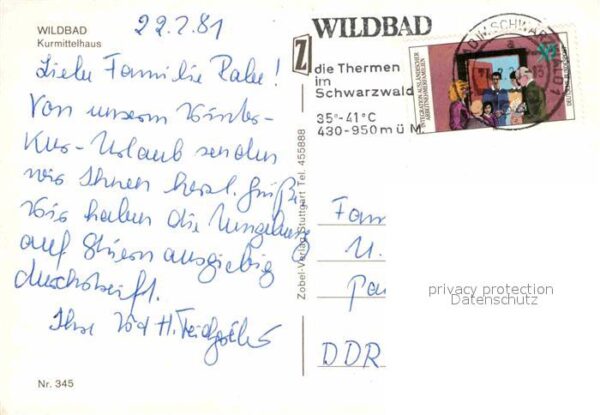 WILDBAD
Kurmittelhaus
22.2.81
Liebe Familie Rabe!
Von unserm Winter-
Kur-Urlaub senden
wir Ihnen herzl. Grüße
Wir haben die Umgebung
auf Skiern ausgiebig
durchstreift.
Ihre
Nr. 345
Zobel-Verlag Stuttgart Tel. 455888
WILDBAD
Z
die Thermen
im
Schwarzwald
35°-41°C
430-950 m ü M
INTEGRATION AUSLÄNDISCHER
ARBEITNEHMERFAMILIEN
Fam
U.
DDR
privacy protection
Datenschutz